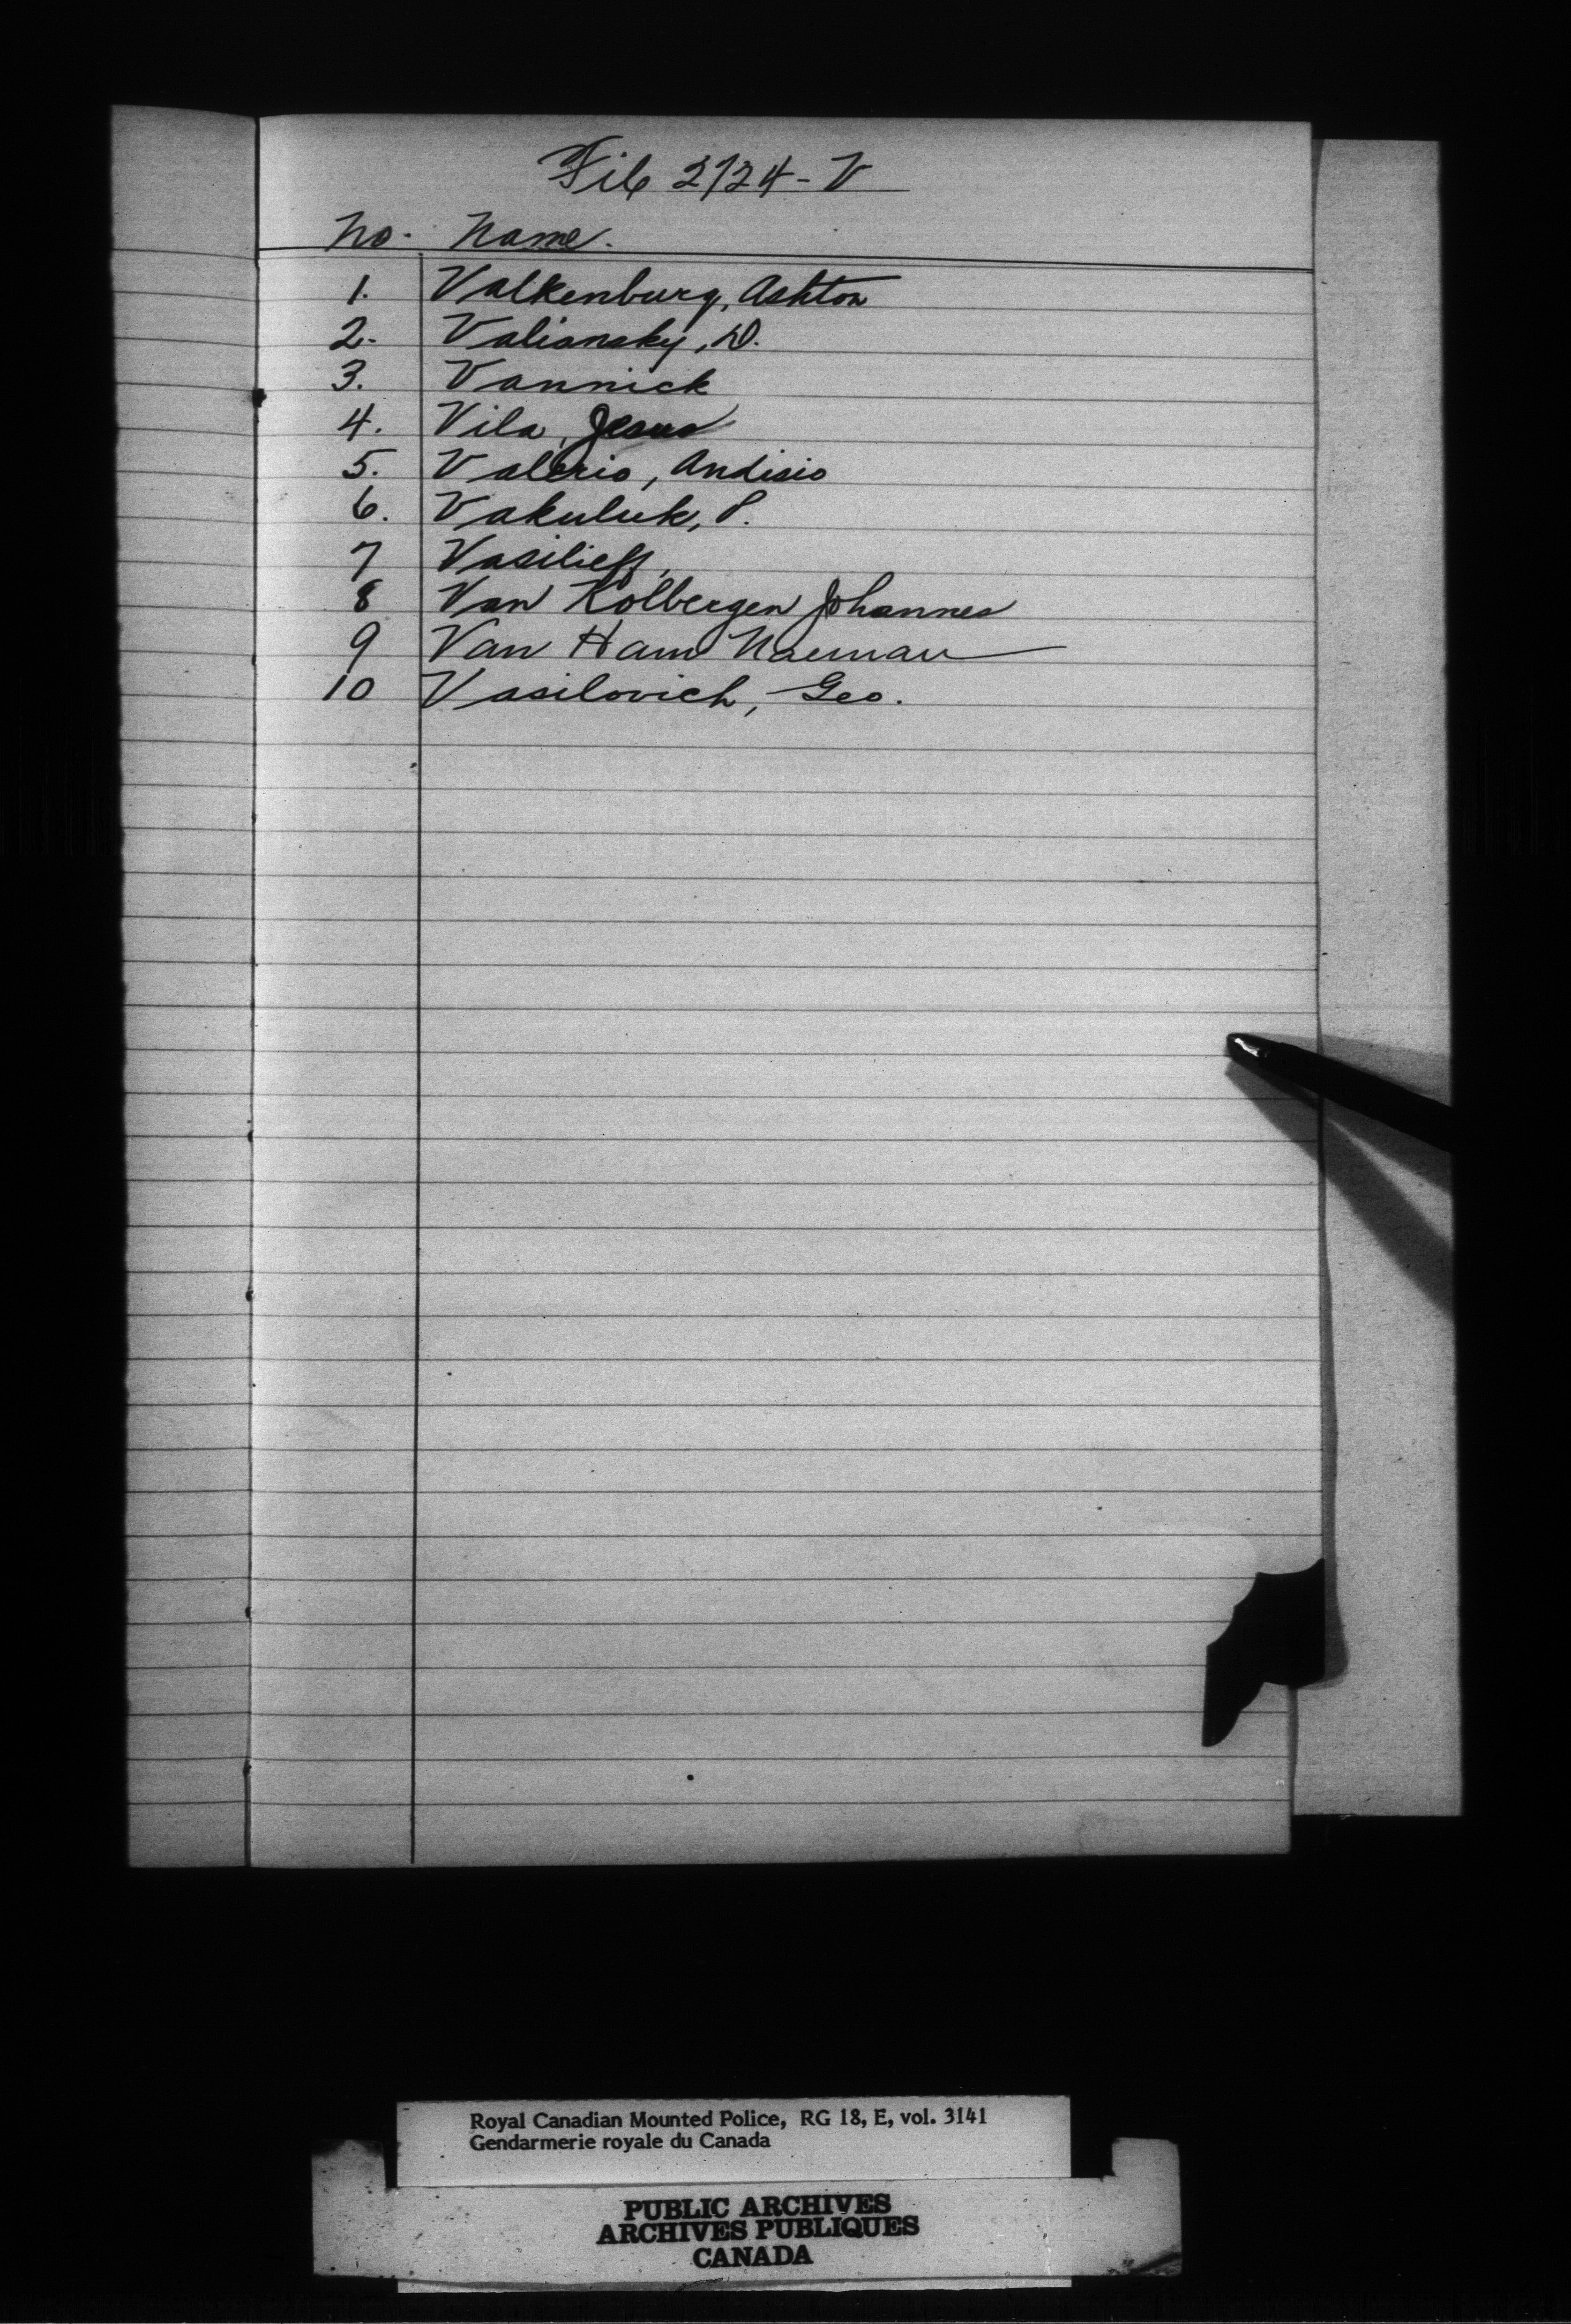 File 2124-V
No. Name.
1. Valkenburg, Ashton
2. Valiansky, D.
3. Vannick
4. Vila, Jesus
5. Valerio, Andisio
6. Vakuluk, P.
7 Vasilieff,
8 Van Kolbergen Johannes
9 Van Ham Nauman
10 Vasilovich, Geo.
Royal Canadian Mounted Police, RG 18, E, vol. 3141
Gendarmerie royale du Canada
PUBLIC ARCHIVES
ARCHIVES PUBLIQUES
CANADA